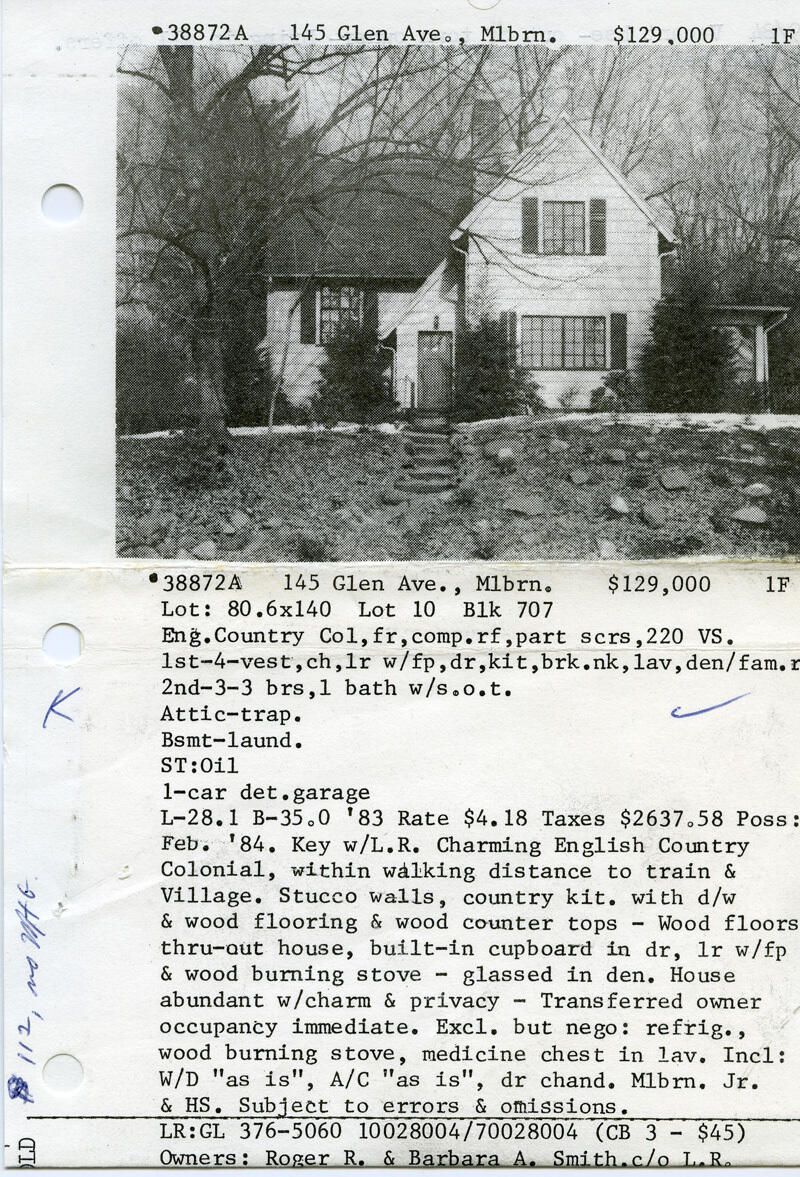 •38872A 145 Glen Ave., Mlbrn. $129,000 1F
•38872A 145 Glen Ave., Mlbrn. $129,000 1F
Lot: 80.6x140 Lot 10 Blk 707
Eng.Country Col,fr,comp.rf,part scrs,220 VS.
1st-4-vest,ch,lr w/fp,dr,kit,brk.nk,lav,den/fam.r
2nd-3-3 brs,1 bath w/s.o.t.
Attic-trap.
Bsmt-laund.
ST:Oil
1-car det.garage
L-28.1 B-35.0 '83 Rate $4.18 Taxes $2637.58 Poss:
Feb. '84. Key w/L.R. Charming English Country
Colonial, within walking distance to train &
Village. Stucco walls, country kit. with d/w
& wood flooring & wood counter tops - Wood floors
thru-out house, built-in cupboard in dr, lr w/fp
& wood burning stove - glassed in den. House
abundant w/charm & privacy - Transferred owner
occupancy immediate. Excl. but nego: refrig.,
wood burning stove, medicine chest in lav. Incl:
W/D "as is", A/C "as is", dr chand. Mlbrn. Jr.
& HS. Subject to errors & omissions.
LR:GL 376-5060 10028004/70028004 (CB 3 - $45)
Owners: Roger R. & Barbara A. Smith.c/o L.R.
K
112, no Mtg.
OLD